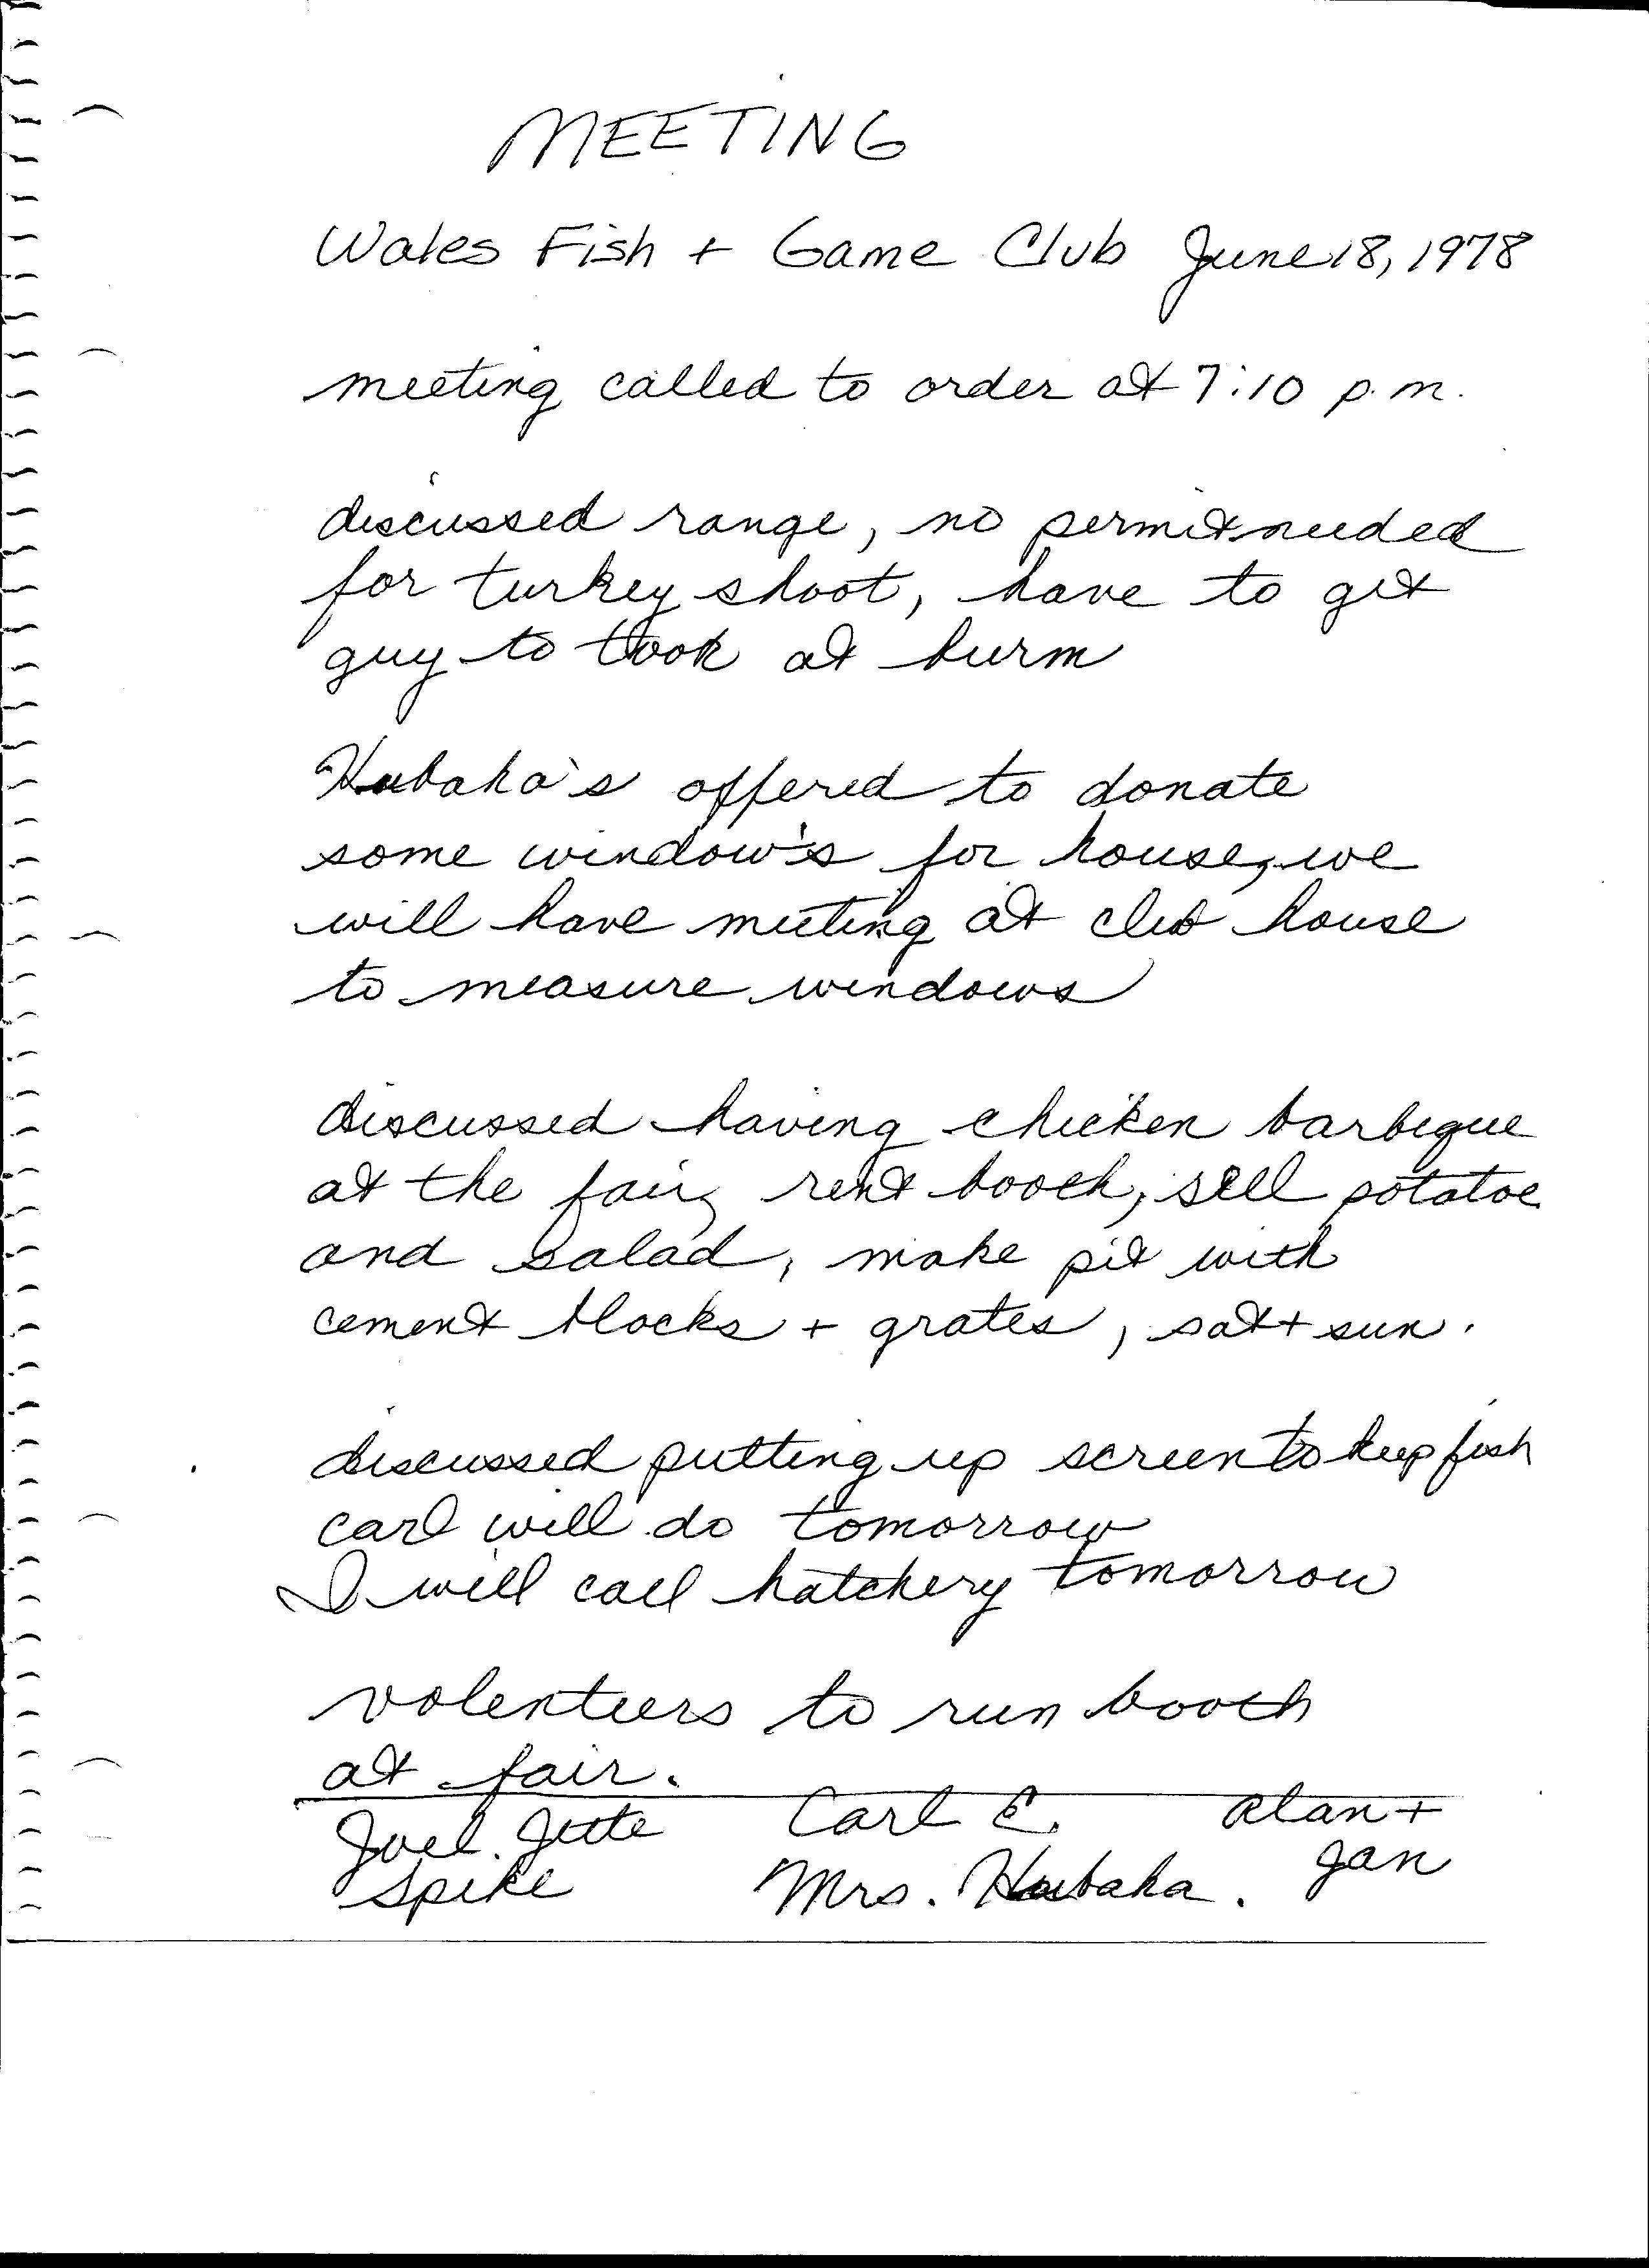 MEETING
Wales Fish + Game Club June 18, 1978
meeting called to order at 7:10 p.m.
discussed range, no permit needed
for turkey shoot, have to get
guy to look at burm
Hubaka's offered to donate
some window's for house, we
will have meeting at club house
to measure windows
discussed having chicken barbeque
at the fair, rent booth, sell potatoe
and salad, make pit with
cement blocks + grates, sat + sun.
discussed putting up screen to keep fish
carl will do tomorrow
I will call hatchery tomorrow
volenteers to run booth
at fair.
Joel. Jette Carl E. alan +
Spike Mrs. Hubaka. Jan